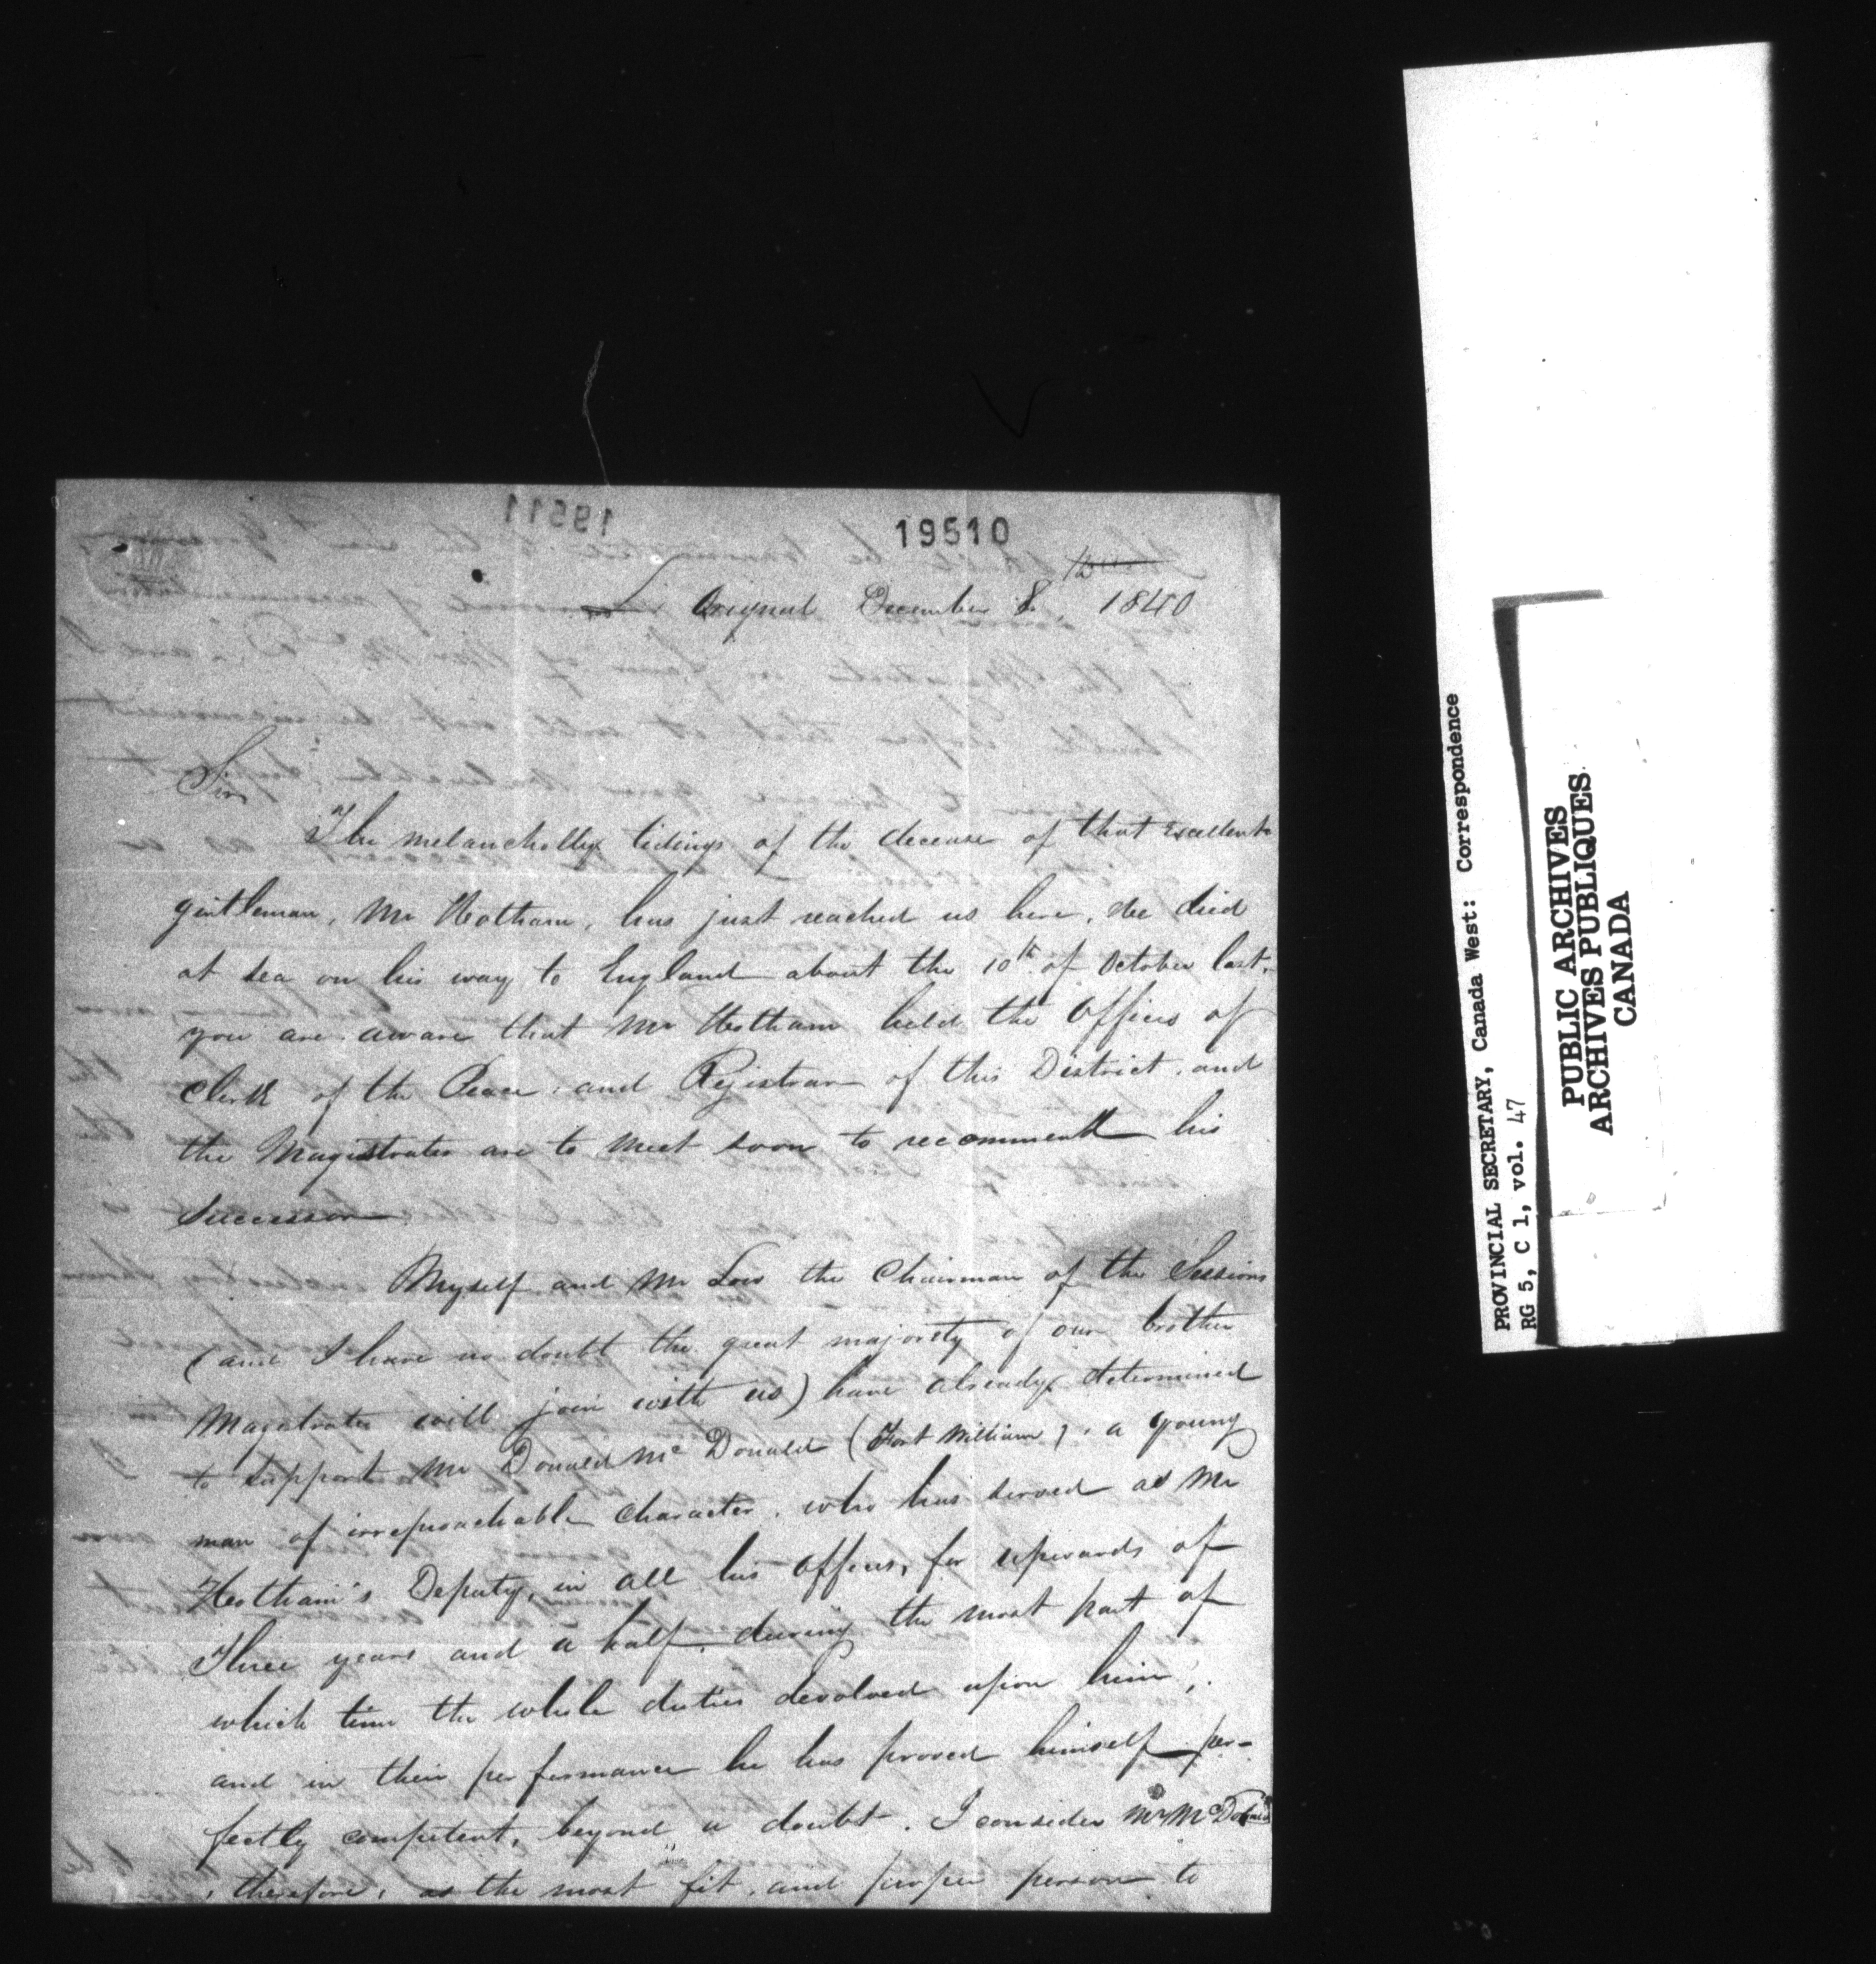 19511
19510
L'Orignal December 8, 1840
Sir,
The melancholly tidings of the decease of that excellent
gentleman, Mr Hotham, has just reached us here, He died
at sea on his way to England about the 10th of October last.
you are aware that Mr Hotham held the Offices of
Clerk of the Peace, and Registrar of this District, and
the Magistrates are to meet soon to recommend his
Successor.
Myself and Mr Low the Chairman of the Sessions
(and I have no doubt the great majority of our brother
Magistrates will join with us) have already determined
to support Mr Donald Mc Donald (Fort William), a young
man of irreproachable Character, who has served as Mr
Hotham's Deputy, in all his offices, for upwards of
Three years and a half, during the most part of
which time the whole duties devolved upon him,
and in their performance he has proved himself per-
fectly competent, beyond a doubt. I consider Mr McDonald
, therefore, as the most fit, and proper person to
PROVINCIAL SECRETARY, Canada West: Correspondence
RG 5, C 1, vol. 47
PUBLIC ARCHIVES
ARCHIVES PUBLIQUES
CANADA